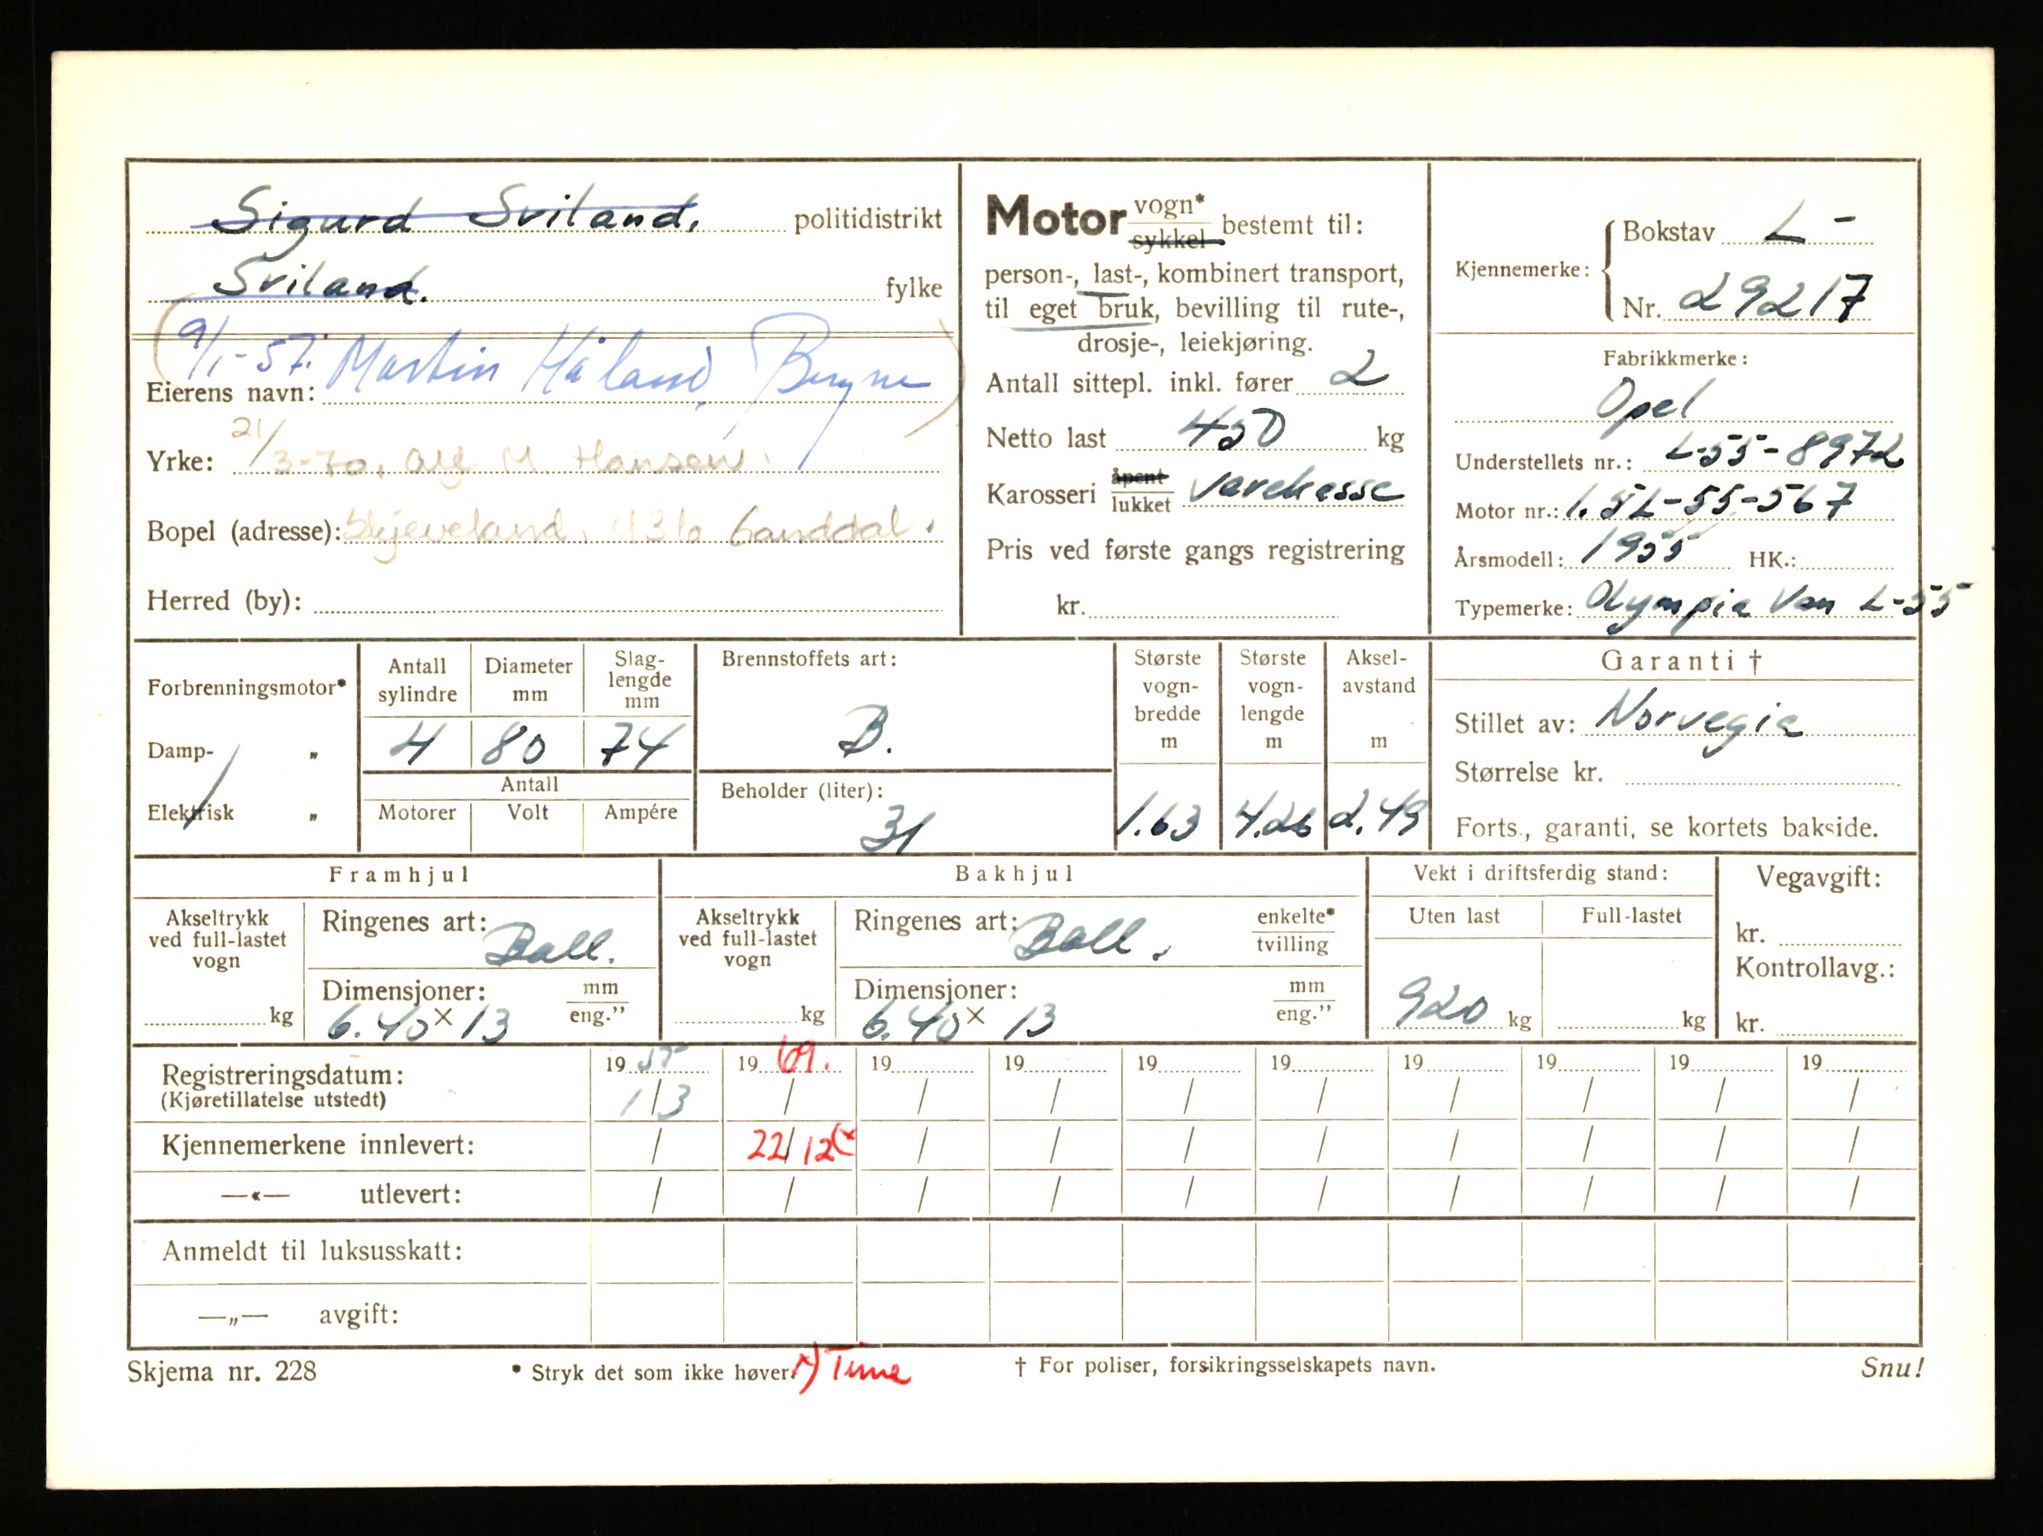 Sigurd Sviland, politidistrikt
Sviland. fylke
(9/1-57. Martin Håland, Bryne)
Eierens navn:
Yrke: 21/3-70, Alf M. Hansen.
Bopel (adresse): Skjeveland, 4310 Ganddal.
Herred (by):
Motor vogn* / sykkel bestemt til:
person-, last-, kombinert transport,
til eget bruk, bevilling til rute-,
drosje-, leiekjøring.
Antall sittepl. inkl. fører 2
Netto last 450 kg
Karosseri åpent / lukket varekasse
Pris ved første gangs registrering
kr.
Kjennemerke: Bokstav L-
Nr. 29217
Fabrikkmerke:
Opel
Understellets nr.: L-55-8972
Motor nr.: 1.5L-55-567
Årsmodell: 1955 HK.:
Typemerke: Olympia Van L-55
Forbrenningsmotor*
Damp- „
Elektrisk „
Antall sylindre
Diameter mm
Slag-lengde mm
4 80 74
Antall
Motorer Volt Ampére
Brennstoffets art:
B.
Beholder (liter):
31
Største vogn-bredde m
1.63
Største vogn-lengde m
4.26
Aksel-avstand m
2.49
Garanti †
Stillet av: Norvegia
Størrelse kr.
Forts., garanti, se kortets bakside.
Framhjul
Akseltrykk ved full-lastet vogn
kg
Ringenes art: Ball.
Dimensjoner: mm / eng."
6.40 x 13
Bakhjul
Akseltrykk ved full-lastet vogn
kg
Ringenes art: Ball. enkelte* / tvilling
Dimensjoner: mm / eng."
6.40 x 13
Vekt i driftsferdig stand:
Uten last Full-lastet
920 kg kg
Vegavgift:
kr.
Kontrollavg.:
kr.
Registreringsdatum: 19 55 19 69. 19 19 19 19 19 19 19 19
(Kjøretillatelse utstedt) 1/3 / / / / / / / / /
Kjennemerkene innlevert: / 22/12 (x / / / / / / / /
—«— utlevert: / / / / / / / / / /
Anmeldt til luksusskatt:
—„— avgift:
Skjema nr. 228
* Stryk det som ikke høver. x) Time
† For poliser, forsikringsselskapets navn.
Snu!